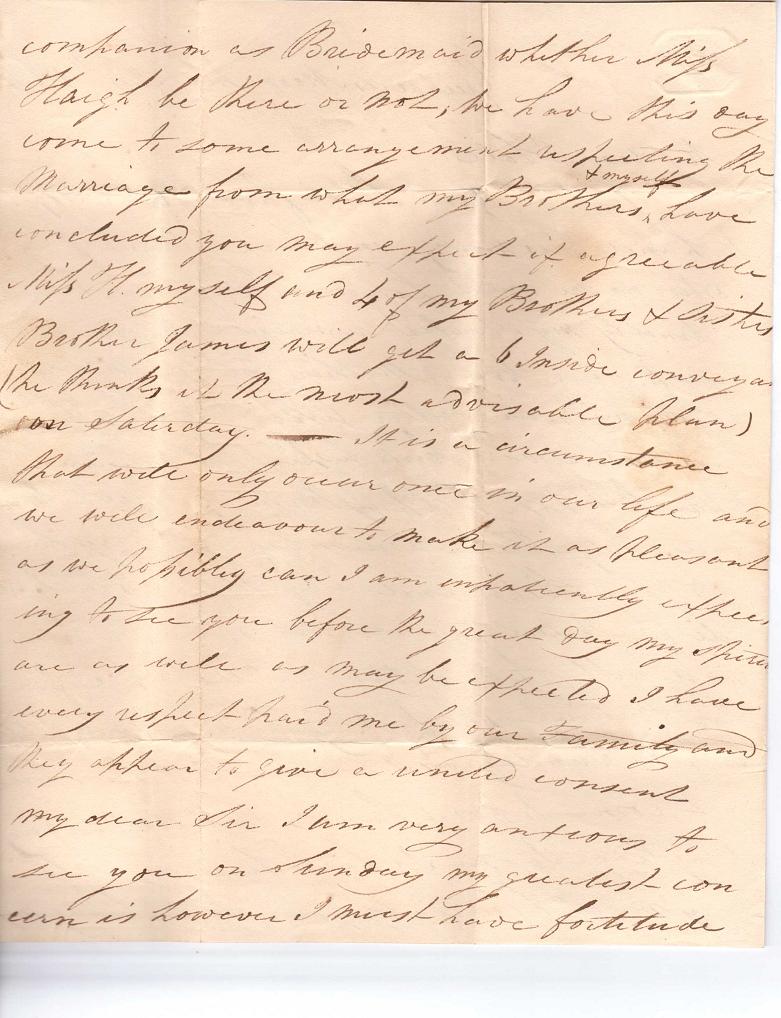 companion as Bridemaid whether Miss
Haigh be there or not, we have this day
come to some arrangement respecting the
& myself
Marriage from what my Brothers, have
concluded you may expect if agreeable
Miss H. myself and 4 of my Brothers & Sisters
Brother James will get a 6 Inside conveyan
(he thinks it the most advisable plan)
on Saterday. — It is a circumstance
that will only occur once in our life and
we will endeavour to make it as pleasant
as we possibley can I am impatiently expect
ing to see you before the great day my spirits
are as well as may be expected I have
every respect paid me by our Family and
they appear to give a united consent
my dear Sir I am very anxious to
see you on Sunday my greatest con
cern is however I must have fortitude